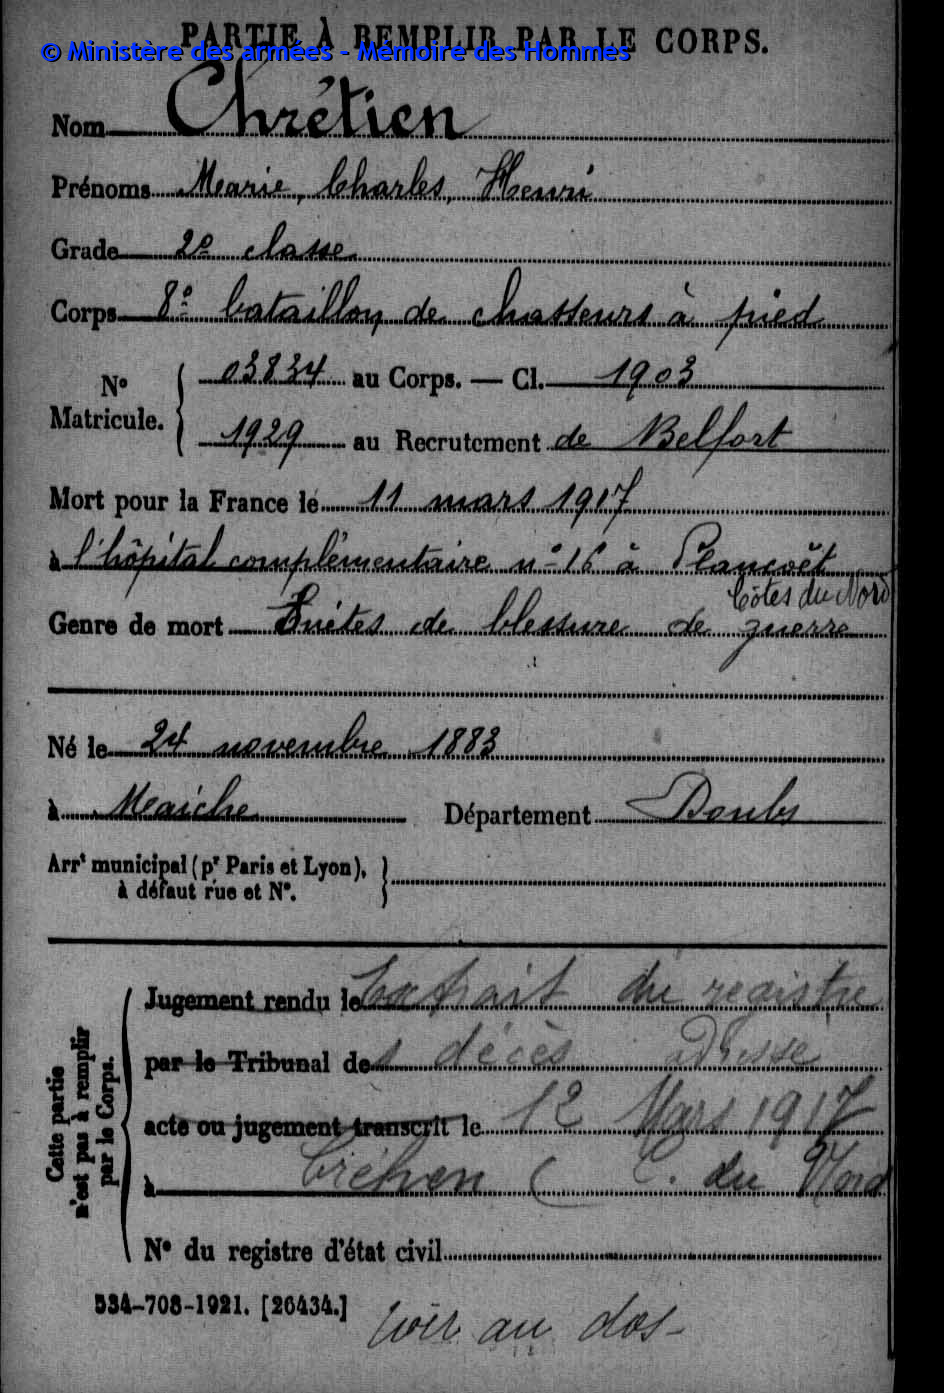 PARTIE À REMPLIR PAR LE CORPS.
© Ministère des armées - Mémoire des Hommes
Nom Chrétien
Prénoms Marie, Charles, Henri
Grade 2e classe
Corps 8e bataillon de chasseurs à pied
No Matricule. { 03834 au Corps. — Cl. 1903
1929 au Recrutement de Belfort
Mort pour la France le 11 mars 1917
à l'hôpital complémentaire no 16 à Plancoët
Côtes du Nord
Genre de mort Suites de blessure de guerre
Né le 24 novembre 1883
à Maiche Département Doubs
Arrt municipal (pr Paris et Lyon), }
à défaut rue et No.
Cette partie n'est pas à remplir par le Corps.
Jugement rendu le Extrait du registre
par le Tribunal des décès adresse
acte ou jugement transcrit le 12 Mars 1917
à Créhen (C. du Nord
No du registre d'état civil
534-708-1921. [26434.]
Voir au dos-